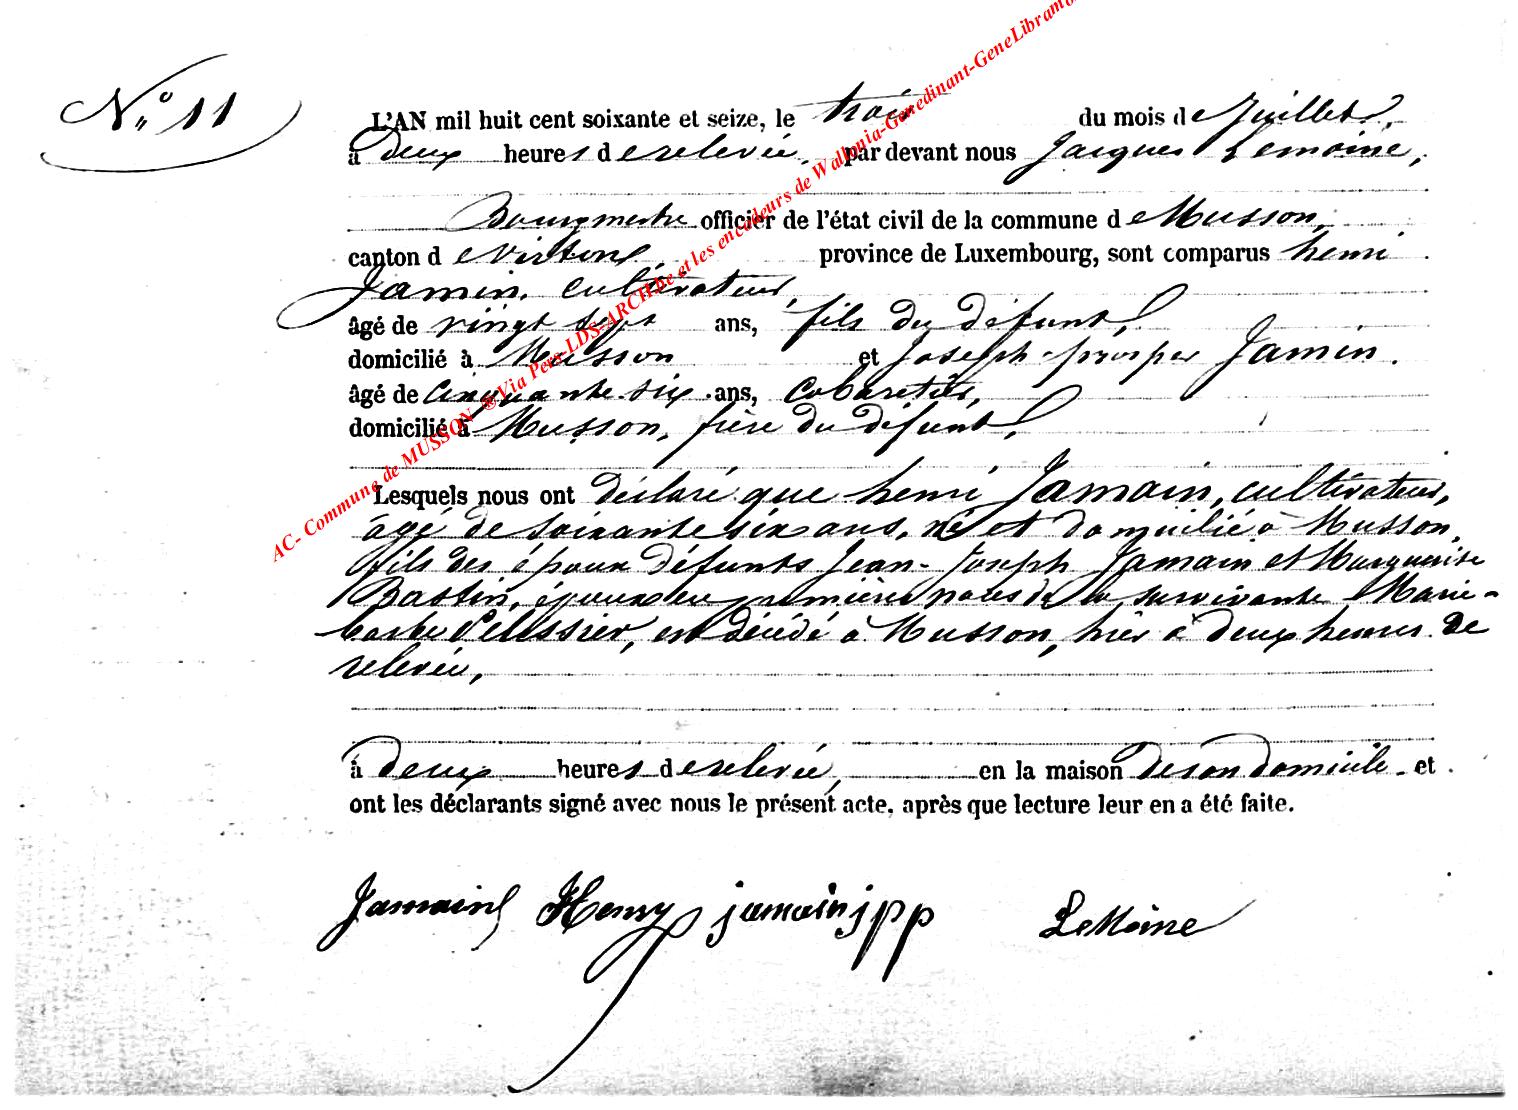 N° 11
L'AN mil huit cent soixante et seize, le trois du mois de Juillet,
à deux heures de relevée, par devant nous Jacques Lemoine,
Bourgmestre officier de l'état civil de la commune de Musson,
canton de Virton, province de Luxembourg, sont comparus henri
Jamin, cultivateur,
âgé de vingt sept ans, fils du défunt,
domicilié à Musson et Joseph-prosper Jamin.
âgé de cinquante six ans, Cabaretier,
domicilié à Musson, frère du défunt,
Lesquels nous ont déclaré que henri Jamain, cultivateur,
âgé de soixante six ans, né et domicilié à Musson,
fils des époux défunts Jean-Joseph Jamain et Marguerite
Bastin, époux en premières noces de la survivante Marie-
barbe Pelessier, est décédé à Musson, hier à deux heures de
relevée,
à deux heures de relevée, en la maison de son domicile et
ont les déclarants signé avec nous le présent acte, après que lecture leur en a été faite.
Jamain Henry jamain jpp LeMoine
AC- Commune de MUSSON ®Via Pers-LDS-ARCHbe et les encodeurs de Wallonia-Genedinant-GeneLibramo